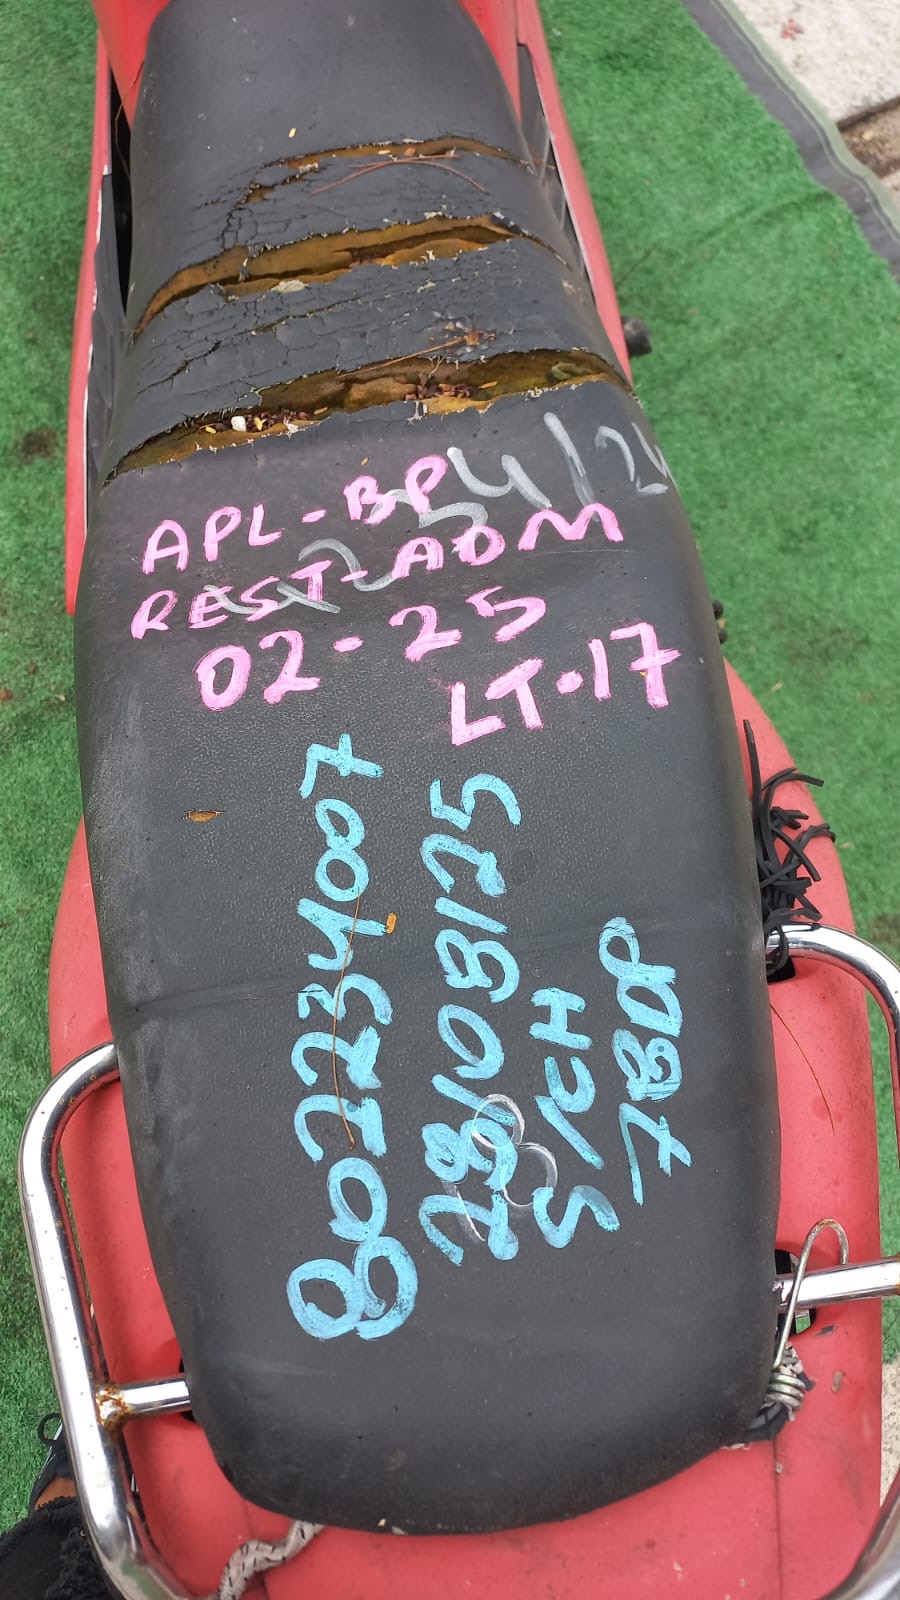 APL-BP
REST-ADM
02-25
LT-17
802234007
28108125
S/CH
7BDP